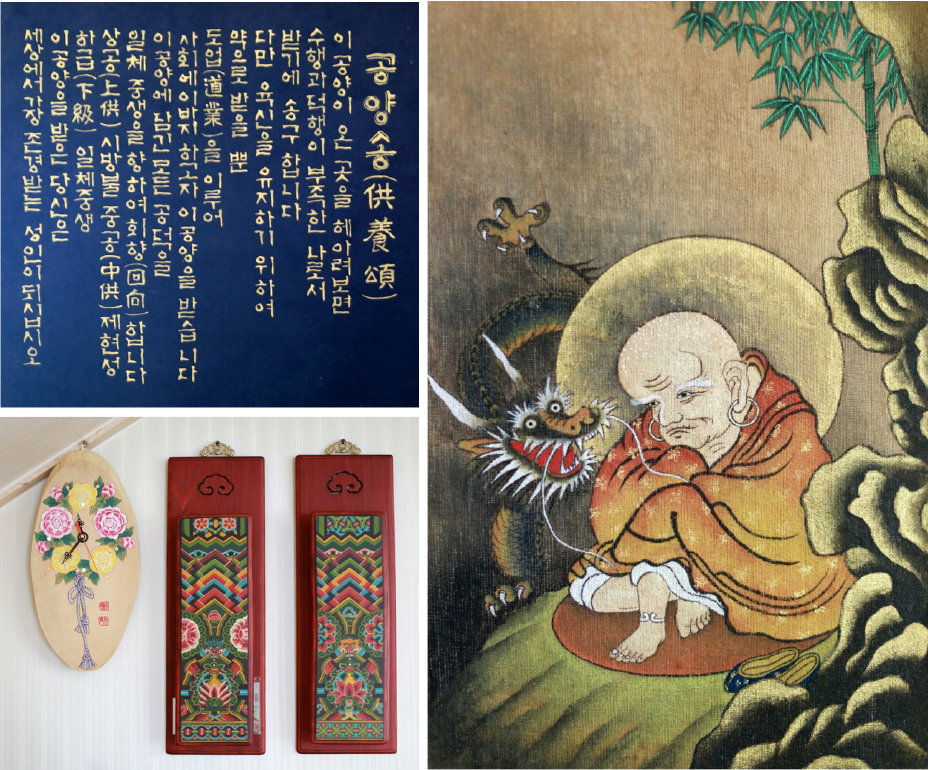 공양송(供養頌)
이 공양이 온 곳을 헤아려보면
수행과 덕행이 부족한 나로서
받기에 송구 합니다
다만 육신을 유지하기 위하여
약으로 받을 뿐
도업(道業)을 이루어
사회에 이바지 하고자 이 공양을 받습니다
이 공양에 담긴 모든 공덕을
일체 중생을 향하여 회향(回向)합니다
상공(上供) 시방불 중공(中供) 제현성
하급(下級) 일체중생
이 공양을 받은 당신은
세상에서 가장 존경받는 성인이 되십시오